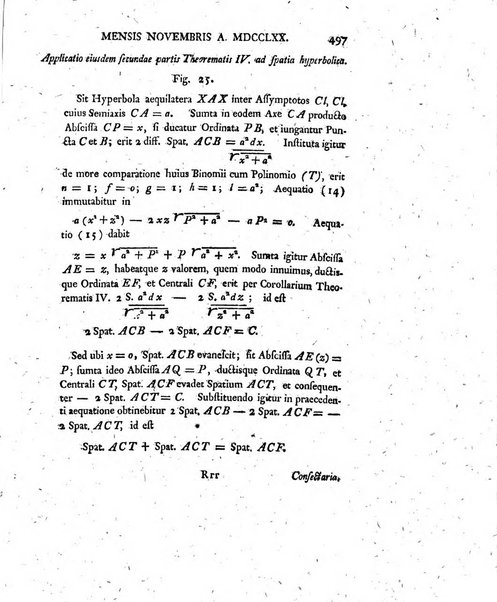 MENSIS NOVEMBRIS A. MDCCLXX. 497
Applicatio eiusdem secundae partis Theorematis IV. ad spatia hyperbolica.
Fig. 25.
Sit Hyperbola aequilatera XAX inter Assymptotos Cl, Cl,
cuius Semiaxis CA = a. Sumta in eodem Axe CA producto
Abscissa CP = x, si ducatur Ordinata PB, et iungantur Pun-
cta C et B; erit 2 diff. Spat. ACB = a²dx. Instituta igitur
√x² + a²
de more comparatione huius Binomii cum Polinomio (T), erit
n = 1; f = 0; g = 1; h = 1; l = a²; Aequatio (14)
immutabitur in
a(x² + z²) — 2xz √P² + a² — aP² = 0. Aequa-
tio (15) dabit
z = x √a² + P² + P √a² + x². Sumta igitur Abscissa
AE = z, habeatque z valorem, quem modo innuimus, ductis-
que Ordinata EF, et Centrali CF, erit per Corollarium Theo-
rematis IV. 2 S. a²dx — 2 S. a²dz; id est
√x² + a² √z² + a²
2 Spat. ACB — 2 Spat. ACF = C.
Sed ubi x = 0, Spat. ACB evanescit; fit Abscissa AE (z) =
P; sumta ideo Abscissa AQ = P, ductisque Ordinata QT, et
Centrali CT, Spat. ACF evadet Spatium ACT, et consequen-
ter — 2 Spat. ACT = C. Substituendo igitur in praeceden-
ti aequatione obtinebitur 2 Spat. ACB — 2 Spat. ACF = —
2 Spat. ACT, id est
Spat. ACT + Spat. ACT = Spat. ACF.
Rrr Consectaria.